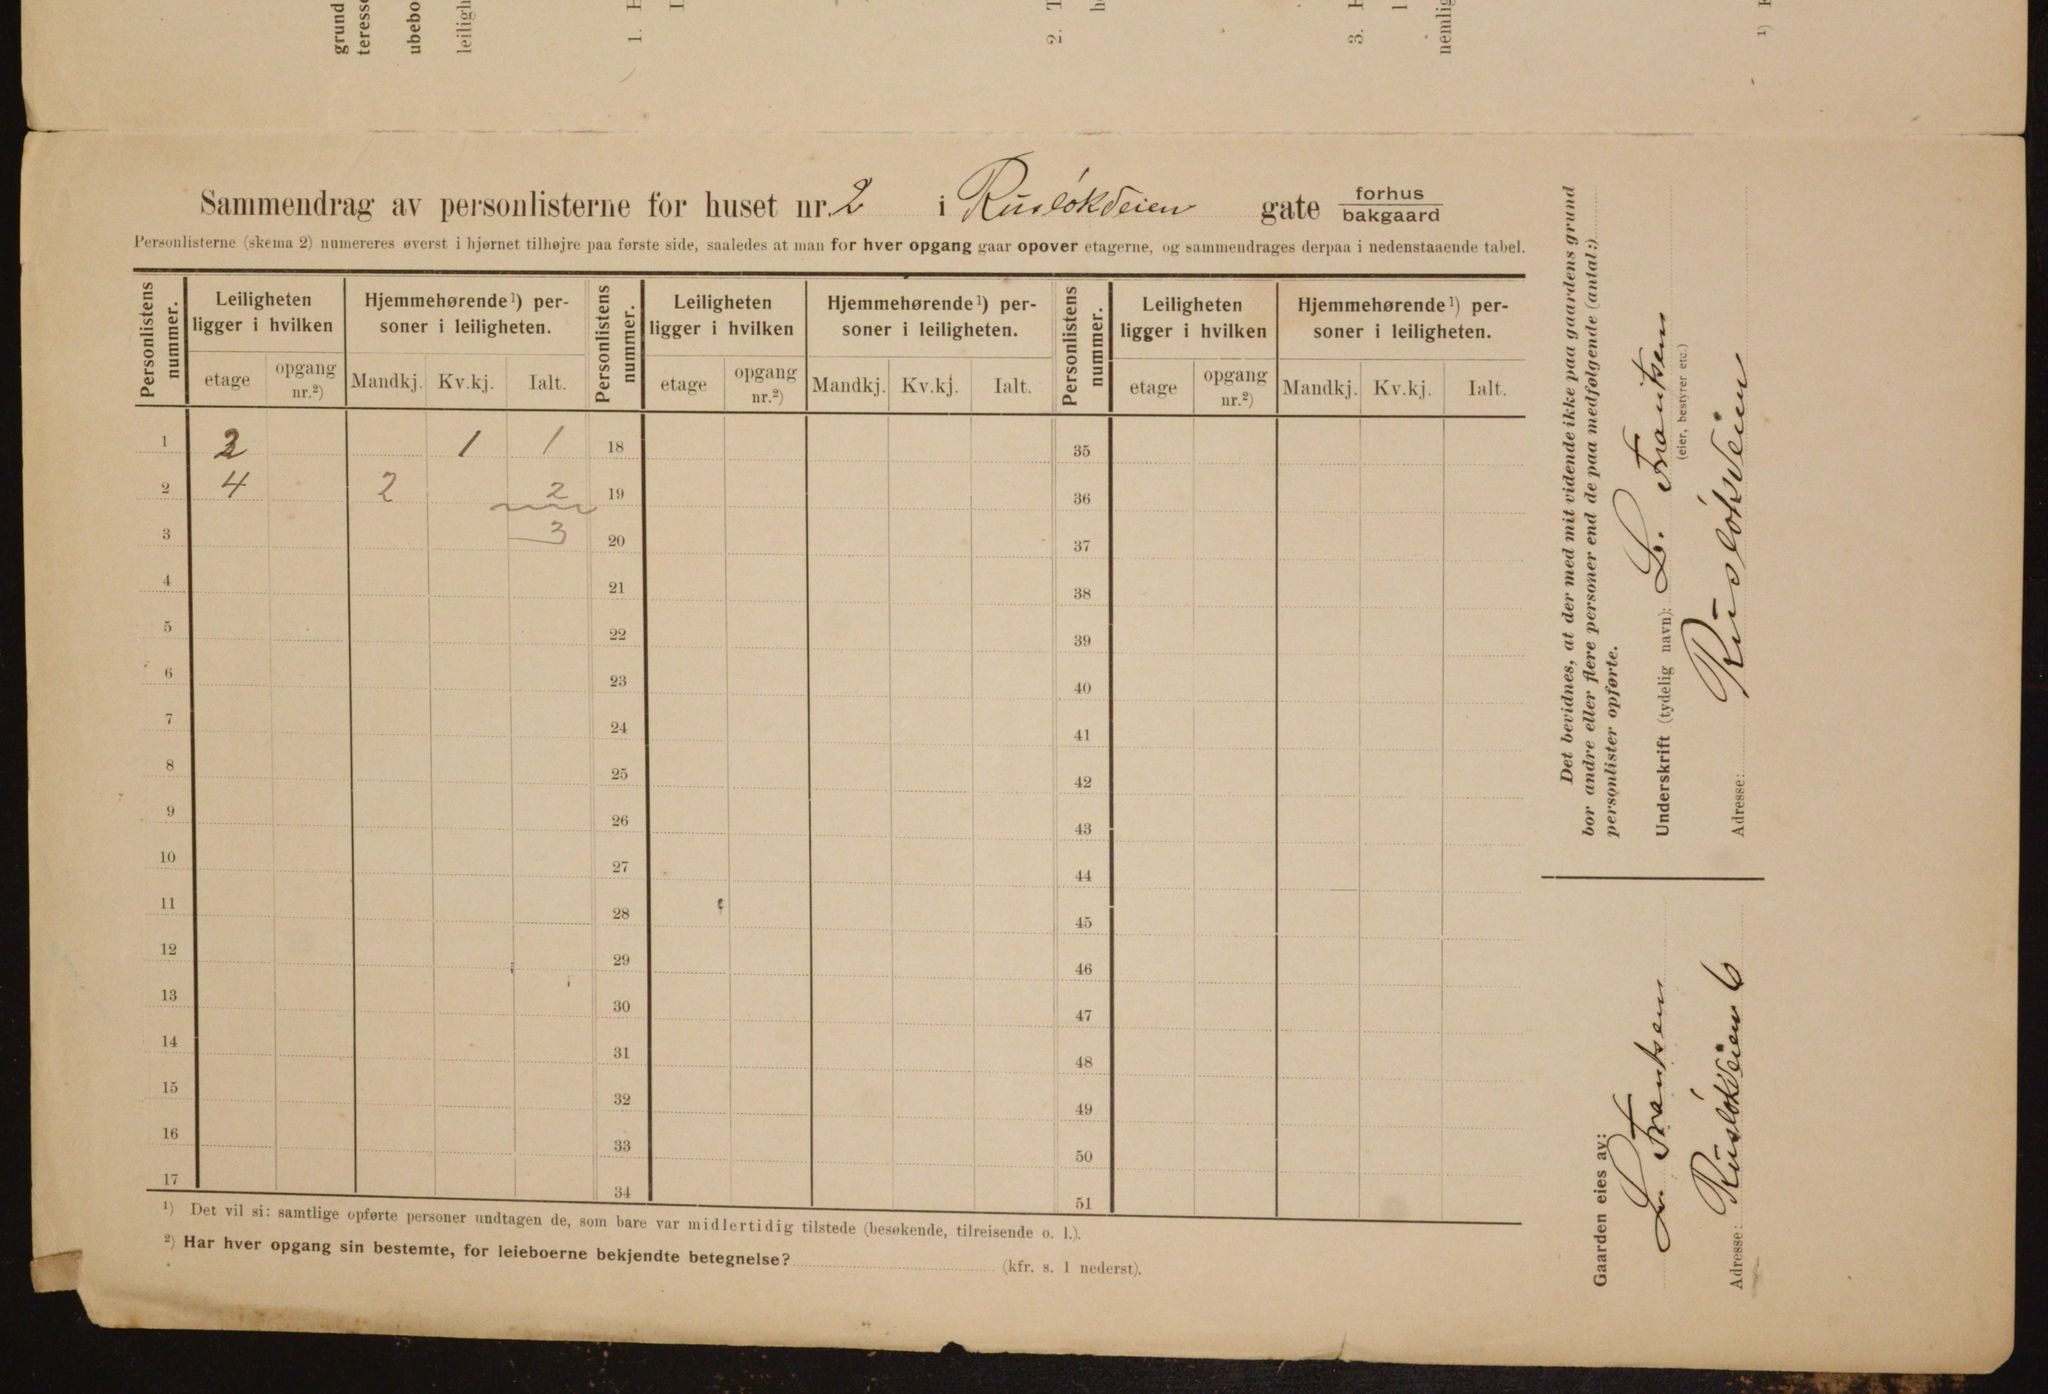 grund
teresse
ubebo
leiligh
1. H
2. T
h
3. H
nemlig
¹)
Sammendrag av personlisterne for huset nr. 2 i Rusløkveien gate forhus
bakgaard
Personlisterne (skema 2) numereres øverst i hjørnet tilhøjre paa første side, saaledes at man for hver opgang gaar opover etagerne, og sammendrages derpaa i nedenstaaende tabel.
Personlistens nummer. Leiligheten ligger i hvilken Hjemmehørende ¹) personer i leiligheten. Personlistens nummer. Leiligheten ligger i hvilken Hjemmehørende ¹) personer i leiligheten. Personlistens nummer. Leiligheten ligger i hvilken Hjemmehørende ¹) personer i leiligheten.
etage opgang nr.²) Mandkj. Kv.kj. Ialt. etage opgang nr.²) Mandkj. Kv.kj. Ialt. etage opgang nr.²) Mandkj. Kv.kj. Ialt.
1 2 1 1 18 35
2 4 2 2 19 36
3 3 20 37
4 21 38
5 22 39
6 23 40
7 24 41
8 25 42
9 26 43
10 27 44
11 28 45
12 29 46
13 30 47
14 31 48
15 32 49
16 33 50
17 34 51
¹) Det vil si: samtlige opførte personer undtagen de, som bare var midlertidig tilstede (besøkende, tilreisende o. l.).
²) Har hver opgang sin bestemte, for leieboerne bekjendte betegnelse? (kfr. s. 1 nederst).
Det bevidnes, at der med mit vidende ikke paa gaardens grund
bor andre eller flere personer end de paa medfølgende (antal:)
personlister opførte.
Underskrift (tydelig navn): L. Frantsen
(eier, bestyrer etc.)
Adresse: Rusløkveien
Gaarden eies av:
L. Frantsen
Adresse: Rusløkveien 6